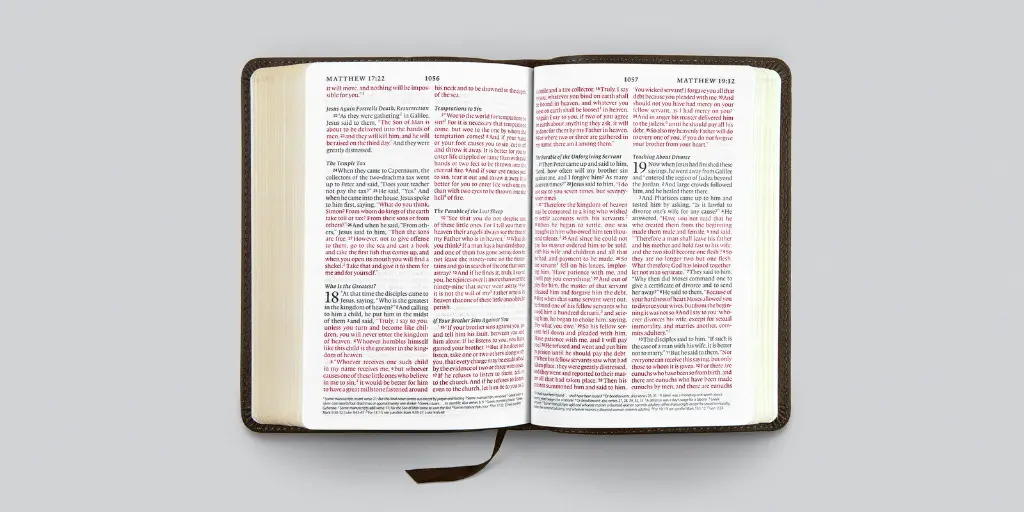 MATTHEW 17:22
1056
it will move, and nothing will be impos-
sible for you."
Jesus Again Foretells Death, Resurrection
22 As they were gathering in Galilee,
Jesus said to them, "The Son of Man is
about to be delivered into the hands of
men, 23 and they will kill him, and he will
be raised on the third day." And they were
greatly distressed.
The Temple Tax
24 When they came to Capernaum, the
collectors of the two-drachma tax went
up to Peter and said, "Does your teacher
not pay the tax?" 25 He said, "Yes." And
when he came into the house, Jesus spoke
to him first, saying, "What do you think,
Simon? From whom do kings of the earth
take toll or tax? From their sons or from
others?" 26 And when he said, "From oth-
ers," Jesus said to him, "Then the sons
are free. 27 However, not to give offense
to them, go to the sea and cast a hook
and take the first fish that comes up, and
when you open its mouth you will find a
shekel. Take that and give it to them for
me and for yourself."
Who Is the Greatest?
18 At that time the disciples came to
Jesus, saying, "Who is the greatest
in the kingdom of heaven?" 2 And calling
to him a child, he put him in the midst
of them 3 and said, "Truly, I say to you,
unless you turn and become like chil-
dren, you will never enter the kingdom
of heaven. 4 Whoever humbles himself
like this child is the greatest in the king-
dom of heaven.
5 "Whoever receives one such child
in my name receives me, 6 but whoever
causes one of these little ones who believe
in me to sin, it would be better for him
to have a great millstone fastened around
his neck and to be drowned in the depth
of the sea.
Temptations to Sin
7 "Woe to the world for temptations to
sin! For it is necessary that temptations
come, but woe to the one by whom the
temptation comes! 8 And if your hand
or your foot causes you to sin, cut it off
and throw it away. It is better for you to
enter life crippled or lame than with two
hands or two feet to be thrown into the
eternal fire. 9 And if your eye causes you
to sin, tear it out and throw it away. It is
better for you to enter life with one eye
than with two eyes to be thrown into the
hell of fire.
The Parable of the Lost Sheep
10 "See that you do not despise one
of these little ones. For I tell you that in
heaven their angels always see the face of
my Father who is in heaven. 12 What do
you think? If a man has a hundred sheep,
and one of them has gone astray, does he
not leave the ninety-nine on the moun-
tains and go in search of the one that went
astray? 13 And if he finds it, truly, I say to
you, he rejoices over it more than over the
ninety-nine that never went astray. 14 So
it is not the will of my Father who is in
heaven that one of these little ones should
perish.
If Your Brother Sins Against You
15 "If your brother sins against you, go
and tell him his fault, between you and
him alone. If he listens to you, you have
gained your brother. 16 But if he does not
listen, take one or two others along with
you, that every charge may be established
by the evidence of two or three witnesses.
17 If he refuses to listen to them, tell it
to the church. And if he refuses to listen
even to the church, let him be to you as a
1057
MATTHEW 19:12
Gentile and a tax collector. 18 Truly, I say
to you, whatever you bind on earth shall
be bound in heaven, and whatever you
loose on earth shall be loosed in heaven.
19 Again I say to you, if two of you agree
on earth about anything they ask, it will
be done for them by my Father in heaven.
20 For where two or three are gathered in
my name, there am I among them."
The Parable of the Unforgiving Servant
21 Then Peter came up and said to him,
"Lord, how often will my brother sin
against me, and I forgive him? As many
as seven times?" 22 Jesus said to him, "I do
not say to you seven times, but seventy-
seven times.
23 "Therefore the kingdom of heaven
may be compared to a king who wished
to settle accounts with his servants.
24 When he began to settle, one was
brought to him who owed him ten thou-
sand talents. 25 And since he could not
pay, his master ordered him to be sold,
with his wife and children and all that
he had, and payment to be made. 26 So
the servant fell on his knees, implor-
ing him, 'Have patience with me, and
I will pay you everything.' 27 And out of
pity for him, the master of that servant
released him and forgave him the debt.
28 But when that same servant went out,
he found one of his fellow servants who
owed him a hundred denarii, and seiz-
ing him, he began to choke him, saying,
'Pay what you owe.' 29 So his fellow ser-
vant fell down and pleaded with him,
'Have patience with me, and I will pay
you.' 30 He refused and went and put him
in prison until he should pay the debt.
31 When his fellow servants saw what had
taken place, they were greatly distressed,
and they went and reported to their mas-
ter all that had taken place. 32 Then his
master summoned him and said to him,
'You wicked servant! I forgave you all that
debt because you pleaded with me. 33 And
should not you have had mercy on your
fellow servant, as I had mercy on you?'
34 And in anger his master delivered him
to the jailers, until he should pay all his
debt. 35 So also my heavenly Father will do
to every one of you, if you do not forgive
your brother from your heart."
Teaching About Divorce
19 Now when Jesus had finished these
sayings, he went away from Galilee
and entered the region of Judea beyond
the Jordan. 2 And large crowds followed
him, and he healed them there.
3 And Pharisees came up to him and
tested him by asking, "Is it lawful to
divorce one's wife for any cause?" 4 He
answered, "Have you not read that he
who created them from the beginning
made them male and female, 5 and said,
'Therefore a man shall leave his father
and his mother and hold fast to his wife,
and the two shall become one flesh'? 6 So
they are no longer two but one flesh.
What therefore God has joined together,
let not man separate." 7 They said to him,
"Why then did Moses command one to
give a certificate of divorce and to send
her away?" 8 He said to them, "Because of
your hardness of heart Moses allowed you
to divorce your wives, but from the begin-
ning it was not so. 9 And I say to you: who-
ever divorces his wife, except for sexual
immorality, and marries another, com-
mits adultery."
10 The disciples said to him, "If such is
the case of a man with his wife, it is better
not to marry." 11 But he said to them, "Not
everyone can receive this saying, but only
those to whom it is given. 12 For there are
eunuchs who have been so from birth, and
there are eunuchs who have been made
eunuchs by men, and there are eunuchs